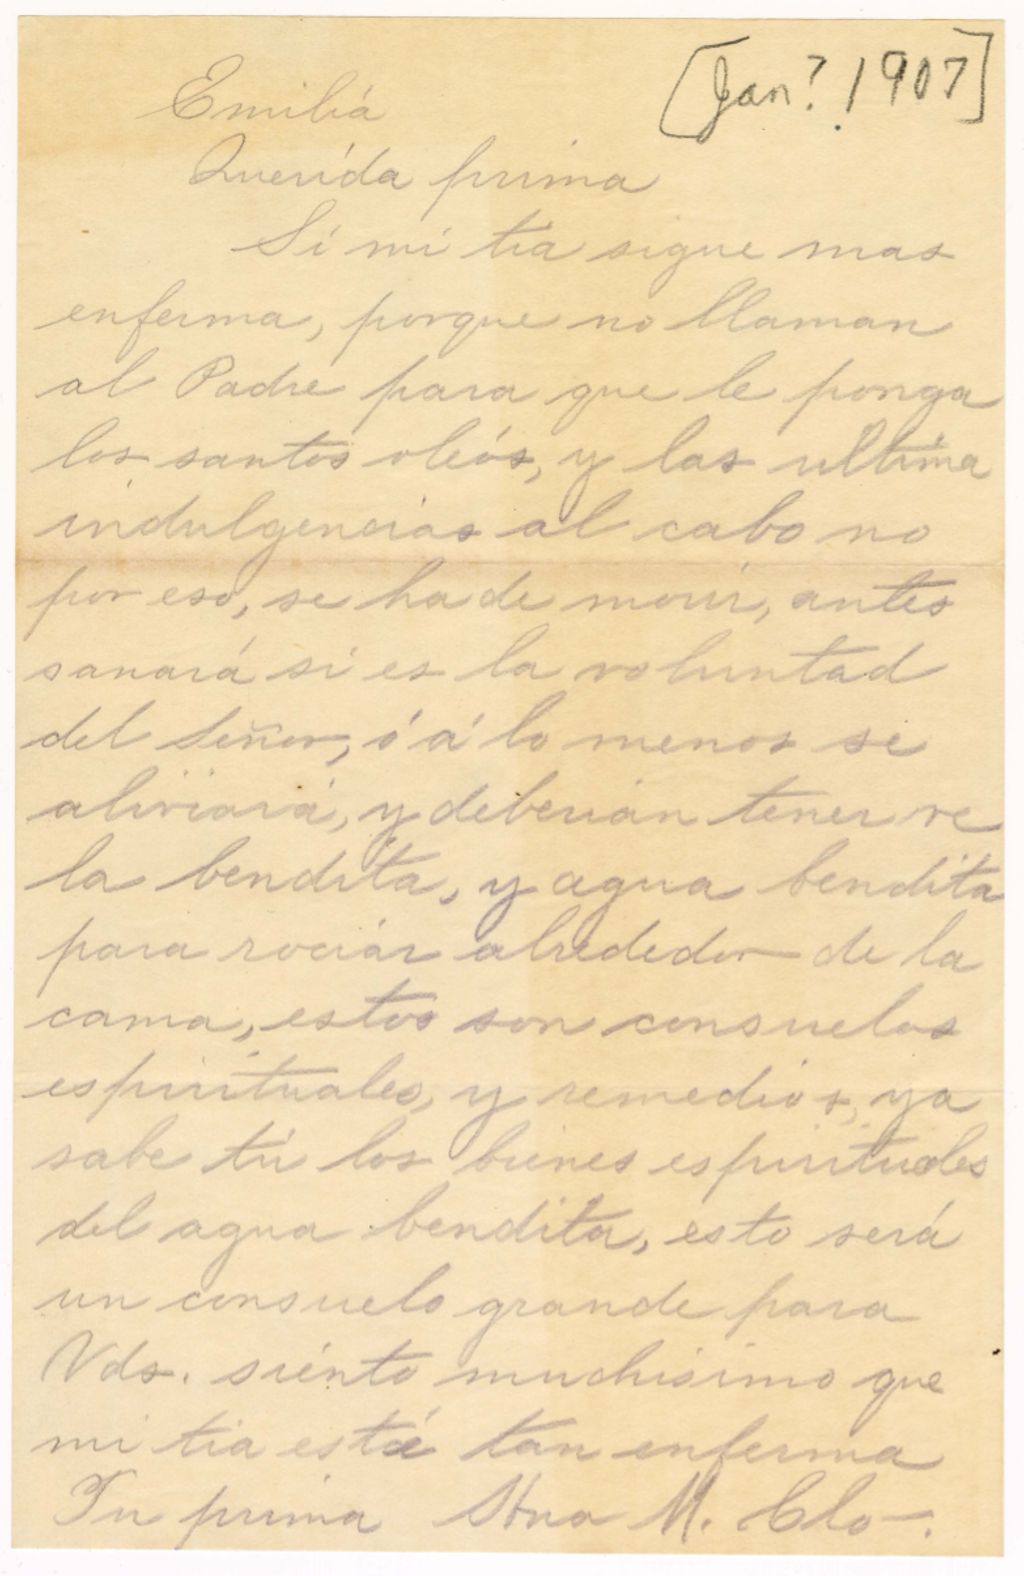 [Jan? 1907]
Emiliá
Querida prima
Si mi tia sigue mas
enferma, porque no llaman
al Padre para que le ponga
los santos oleós, y las ultima
indulgencias al cabo no
por eso, se ha de morir, antes
sanará si es la voluntad
del Señor, ó á lo menos se
aliviará, y deberian tener ve
la bendita, y agua bendita
para rociar alrededor de la
cama, estos son consuelos
espirituales, y remedios, ya
sabe tú los bienes espirituales
del agua bendita, esto será
un consuelo grande para
Vds. siento muchisimo que
mi tia esté tan enferma
Tu prima Hna M. Clo-.